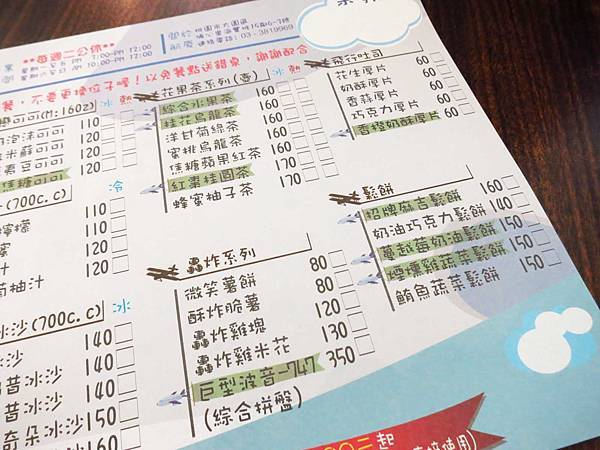 **每週二公休**
PM 12:00
PM 12:00
桃園市大園區
03-3819969
花果茶系列(壺) 冰 熱
綜合水果茶 160
桂花烏龍茶 160
洋甘菊綠茶 160
蜜桃烏龍茶 160
焦糖蘋果紅茶 170
紅棗桂圓茶 160
蜂蜜柚子茶 170
飛行吐司
花生厚片 60
奶酥厚片 60
香蒜厚片 60
巧克力厚片 60
香橙奶酥厚片 60
可可(M:16OZ) 冰 熱
泡沫可可 110
米蘇可可 120
麦豆可可 120
焦糖可可 120
(700c.c) 冷
檸檬 110
蜜 120
汁 120
柚汁 120
冰沙(700c.c) 冰
冰沙 140
昔冰沙 140
昔冰沙 140
奇朵冰沙 150
冰沙 160
轟炸系列
微笑薯餅 80
酥炸脆薯 80
轟炸雞塊 120
轟炸雞米花 130
巨型波音-747 350
(綜合拼盤)
鬆餅
招牌麻吉鬆餅 160
奶油巧克力鬆餅 140
蔓越莓奶油鬆餅 150
燻雞蔬菜鬆餅 150
鮪魚蔬菜鬆餅 150
元起
使用)